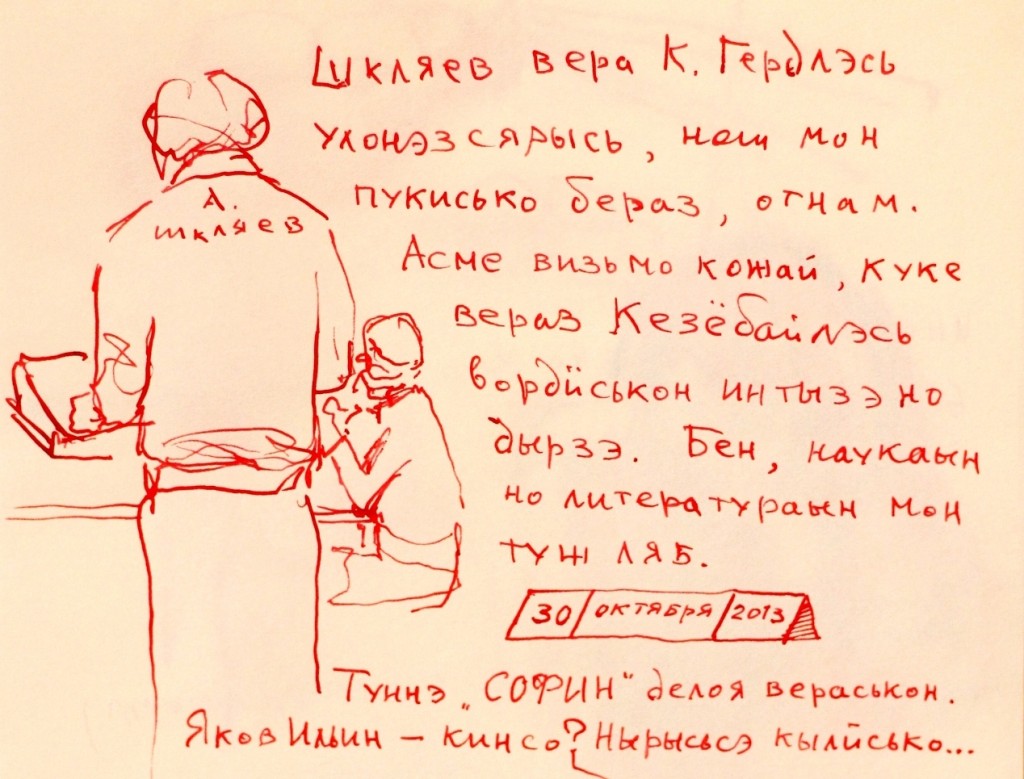 Шкляев вера К. Гердлэсь
улонэз сярысь, нош мон
пукисько бераз, отнам.
А.
шкляев
Асме визьмо кожай, куке
вераз Кезёбайлэсь
вордӥськон интызэ но
дырзэ. Бен, наукаын
но литератураын мон
туж ляб.
30 октября 2013
Туннэ „СОФИН“ делоя вераськон.
Яков Ильин – кин со? Нырысьсэ кылӥсько...